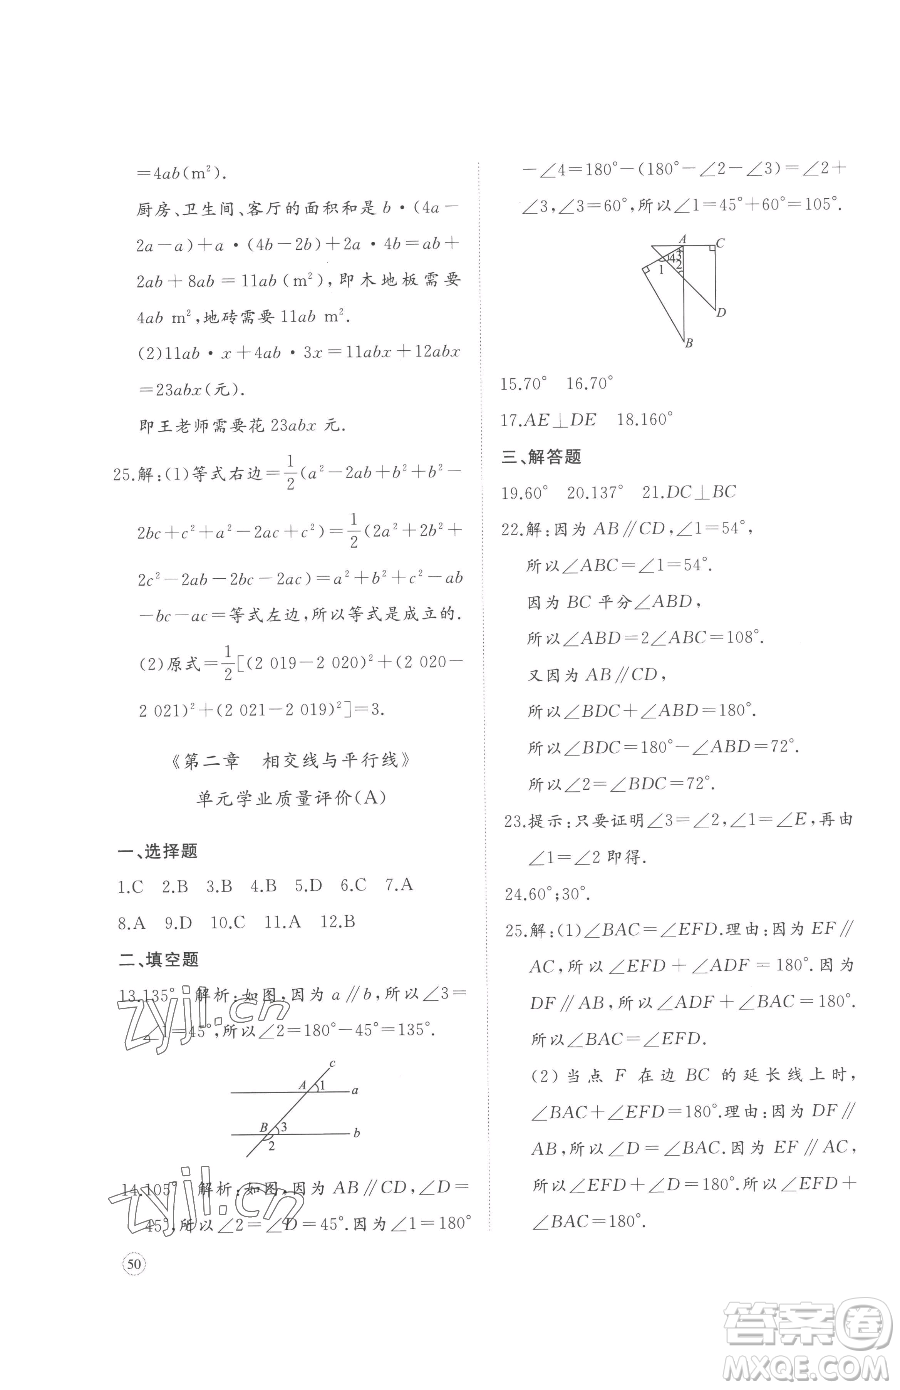 =4ab(m²).
厨房、卫生间、客厅的面积和是 b·(4a-
2a-a)+a·(4b-2b)+2a·4b=ab+
2ab+8ab=11ab(m²),即木地板需要
4ab m²,地砖需要 11ab m².
(2)11ab·x+4ab·3x=11abx+12abx
=23abx(元).
即王老师需要花 23abx 元.
25.解:(1)等式右边=1/2(a²-2ab+b²+b²-
2bc+c²+a²-2ac+c²)=1/2(2a²+2b²+
2c²-2ab-2bc-2ac)=a²+b²+c²-ab
-bc-ac=等式左边,所以等式是成立的.
(2)原式=1/2[(2 019-2 020)²+(2 020-
2 021)²+(2 021-2 019)²]=3.
《第二章 相交线与平行线》
单元学业质量评价(A)
一、选择题
1.C 2.B 3.B 4.B 5.D 6.C 7.A
8.A 9.D 10.C 11.A 12.B
二、填空题
13.135° 解析:如图,因为 a∥b,所以∠3=
∠1=45°,所以∠2=180°-45°=135°.
c
A 1 a
B 3 b
2
14.105° 解析:如图,因为 AB∥CD,∠D=
45°,所以∠2=∠D=45°.因为∠1=180°
50
-∠4=180°-(180°-∠2-∠3)=∠2+
∠3,∠3=60°,所以∠1=45°+60°=105°.
A C
4 3
1 2
D
B
15.70° 16.70°
17.AE⊥DE 18.160°
三、解答题
19.60° 20.137° 21.DC⊥BC
22.解:因为 AB∥CD,∠1=54°,
所以∠ABC=∠1=54°.
因为 BC 平分∠ABD,
所以∠ABD=2∠ABC=108°.
又因为 AB∥CD,
所以∠BDC+∠ABD=180°.
所以∠BDC=180°-∠ABD=72°.
所以∠2=∠BDC=72°.
23.提示:只要证明∠3=∠2,∠1=∠E,再由
∠1=∠2 即得.
24.60°;30°.
25.解:(1)∠BAC=∠EFD.理由:因为 EF∥
AC,所以∠EFD+∠ADF=180°.因为
DF∥AB,所以∠ADF+∠BAC=180°.
所以∠BAC=∠EFD.
(2)当点 F 在边 BC 的延长线上时,
∠BAC+∠EFD=180°.理由:因为 DF∥
AB,所以∠D=∠BAC.因为 EF∥AC,
所以∠EFD+∠D=180°.所以∠EFD+
∠BAC=180°.
zyjl.cn
zyjl.cn
答案圈
MXQE.COM